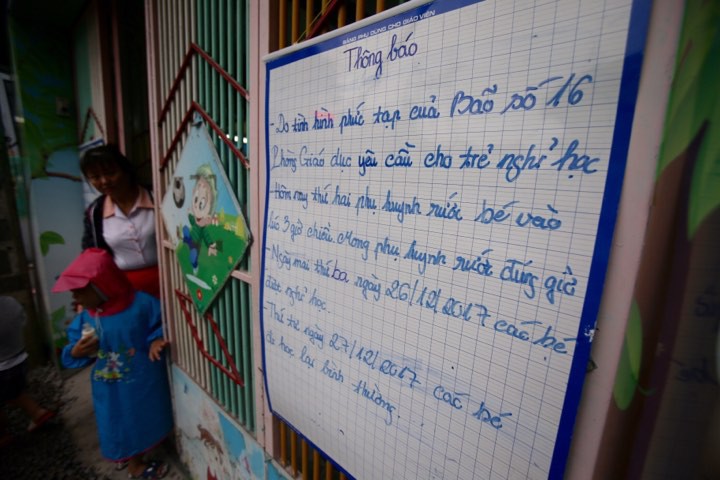 BẢNG PHỤ DÙNG CHO GIÁO VIÊN
Thông báo
- Do tình hình phức tạp của Bão số 16
Phòng Giáo dục yêu cầu cho trẻ nghỉ học
- Hôm nay thứ hai phụ huynh rước bé vào
lúc 3 giờ chiều. Mong phụ huynh rước đúng giờ
- Ngày mai thứ ba ngày 26/12/2017 các bé
được nghỉ học.
- Thứ tư ngày 27/12/2017 các bé
đi học lại bình thường...